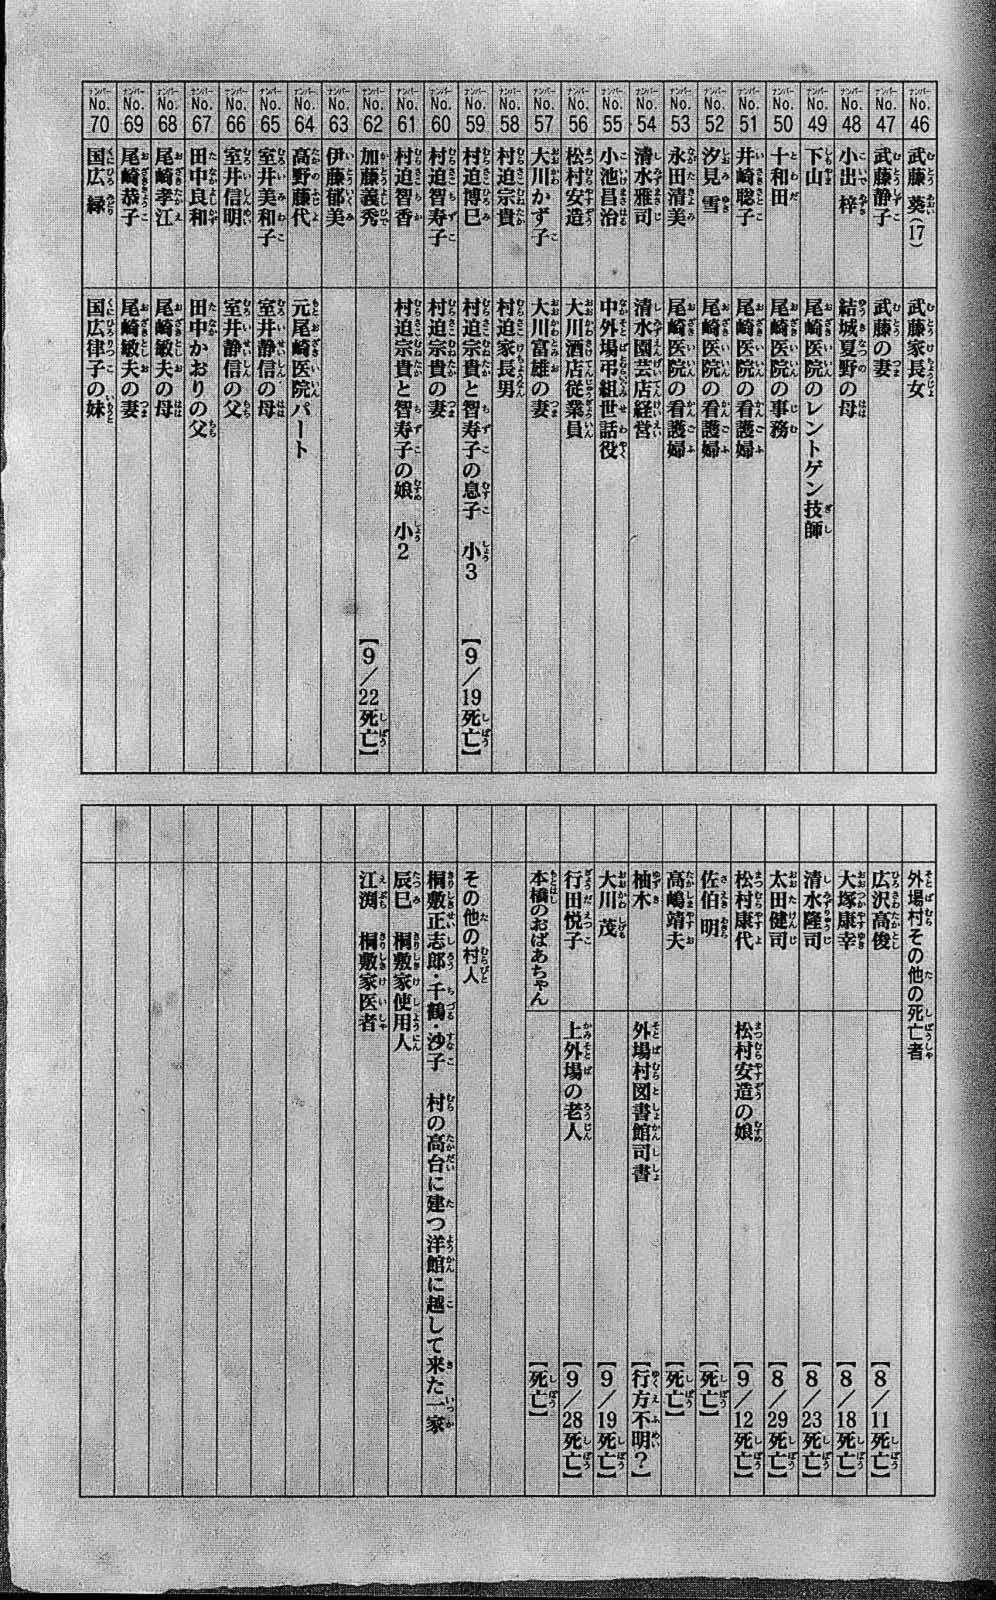 No.46 武藤 葵(17) 武藤家長女
No.47 武藤静子 武藤の妻
No.48 小出 梓 結城夏野の母
No.49 下山 尾崎医院のレントゲン技師
No.50 十和田 尾崎医院の事務
No.51 井崎聡子 尾崎医院の看護婦
No.52 汐見 雪 尾崎医院の看護婦
No.53 永田清美 尾崎医院の看護婦
No.54 清水雅司 清水園芸店経営
No.55 小池昌治 中外場弔組世話役
No.56 松村安造 大川酒店従業員
No.57 大川かず子 大川富雄の妻
No.58 村迫宗貴 村迫家長男
No.59 村迫博巳 村迫宗貴と智寿子の息子 小3 【9/19死亡】
No.60 村迫智寿子 村迫宗貴の妻
No.61 村迫智香 村迫宗貴と智寿子の娘 小2
No.62 加藤義秀 【9/22死亡】
No.63 伊藤郁美
No.64 高野藤代 元尾崎医院パート
No.65 室井美和子 室井静信の母
No.66 室井信明 室井静信の父
No.67 田中良和 田中かおりの父
No.68 尾崎孝江 尾崎敏夫の母
No.69 尾崎恭子 尾崎敏夫の妻
No.70 国広 緑 国広律子の妹
外場村その他の死亡者
広沢高俊 【8/11死亡】
大塚康幸 【8/18死亡】
清水隆司 【8/23死亡】
太田健司 【8/29死亡】
松村康代 松村安造の娘 【9/12死亡】
佐伯 明 【死亡】
高嶋靖夫 【死亡】
柚木 外場村図書館司書 【行方不明?】
大川 茂 【9/19死亡】
行田悦子 上外場の老人 【9/28死亡】
本橋のおばあちゃん 【死亡】
その他の村人
桐敷正志郎・千鶴・沙子 村の高台に建つ洋館に越して来た一家
辰巳 桐敷家使用人
江渕 桐敷家医者